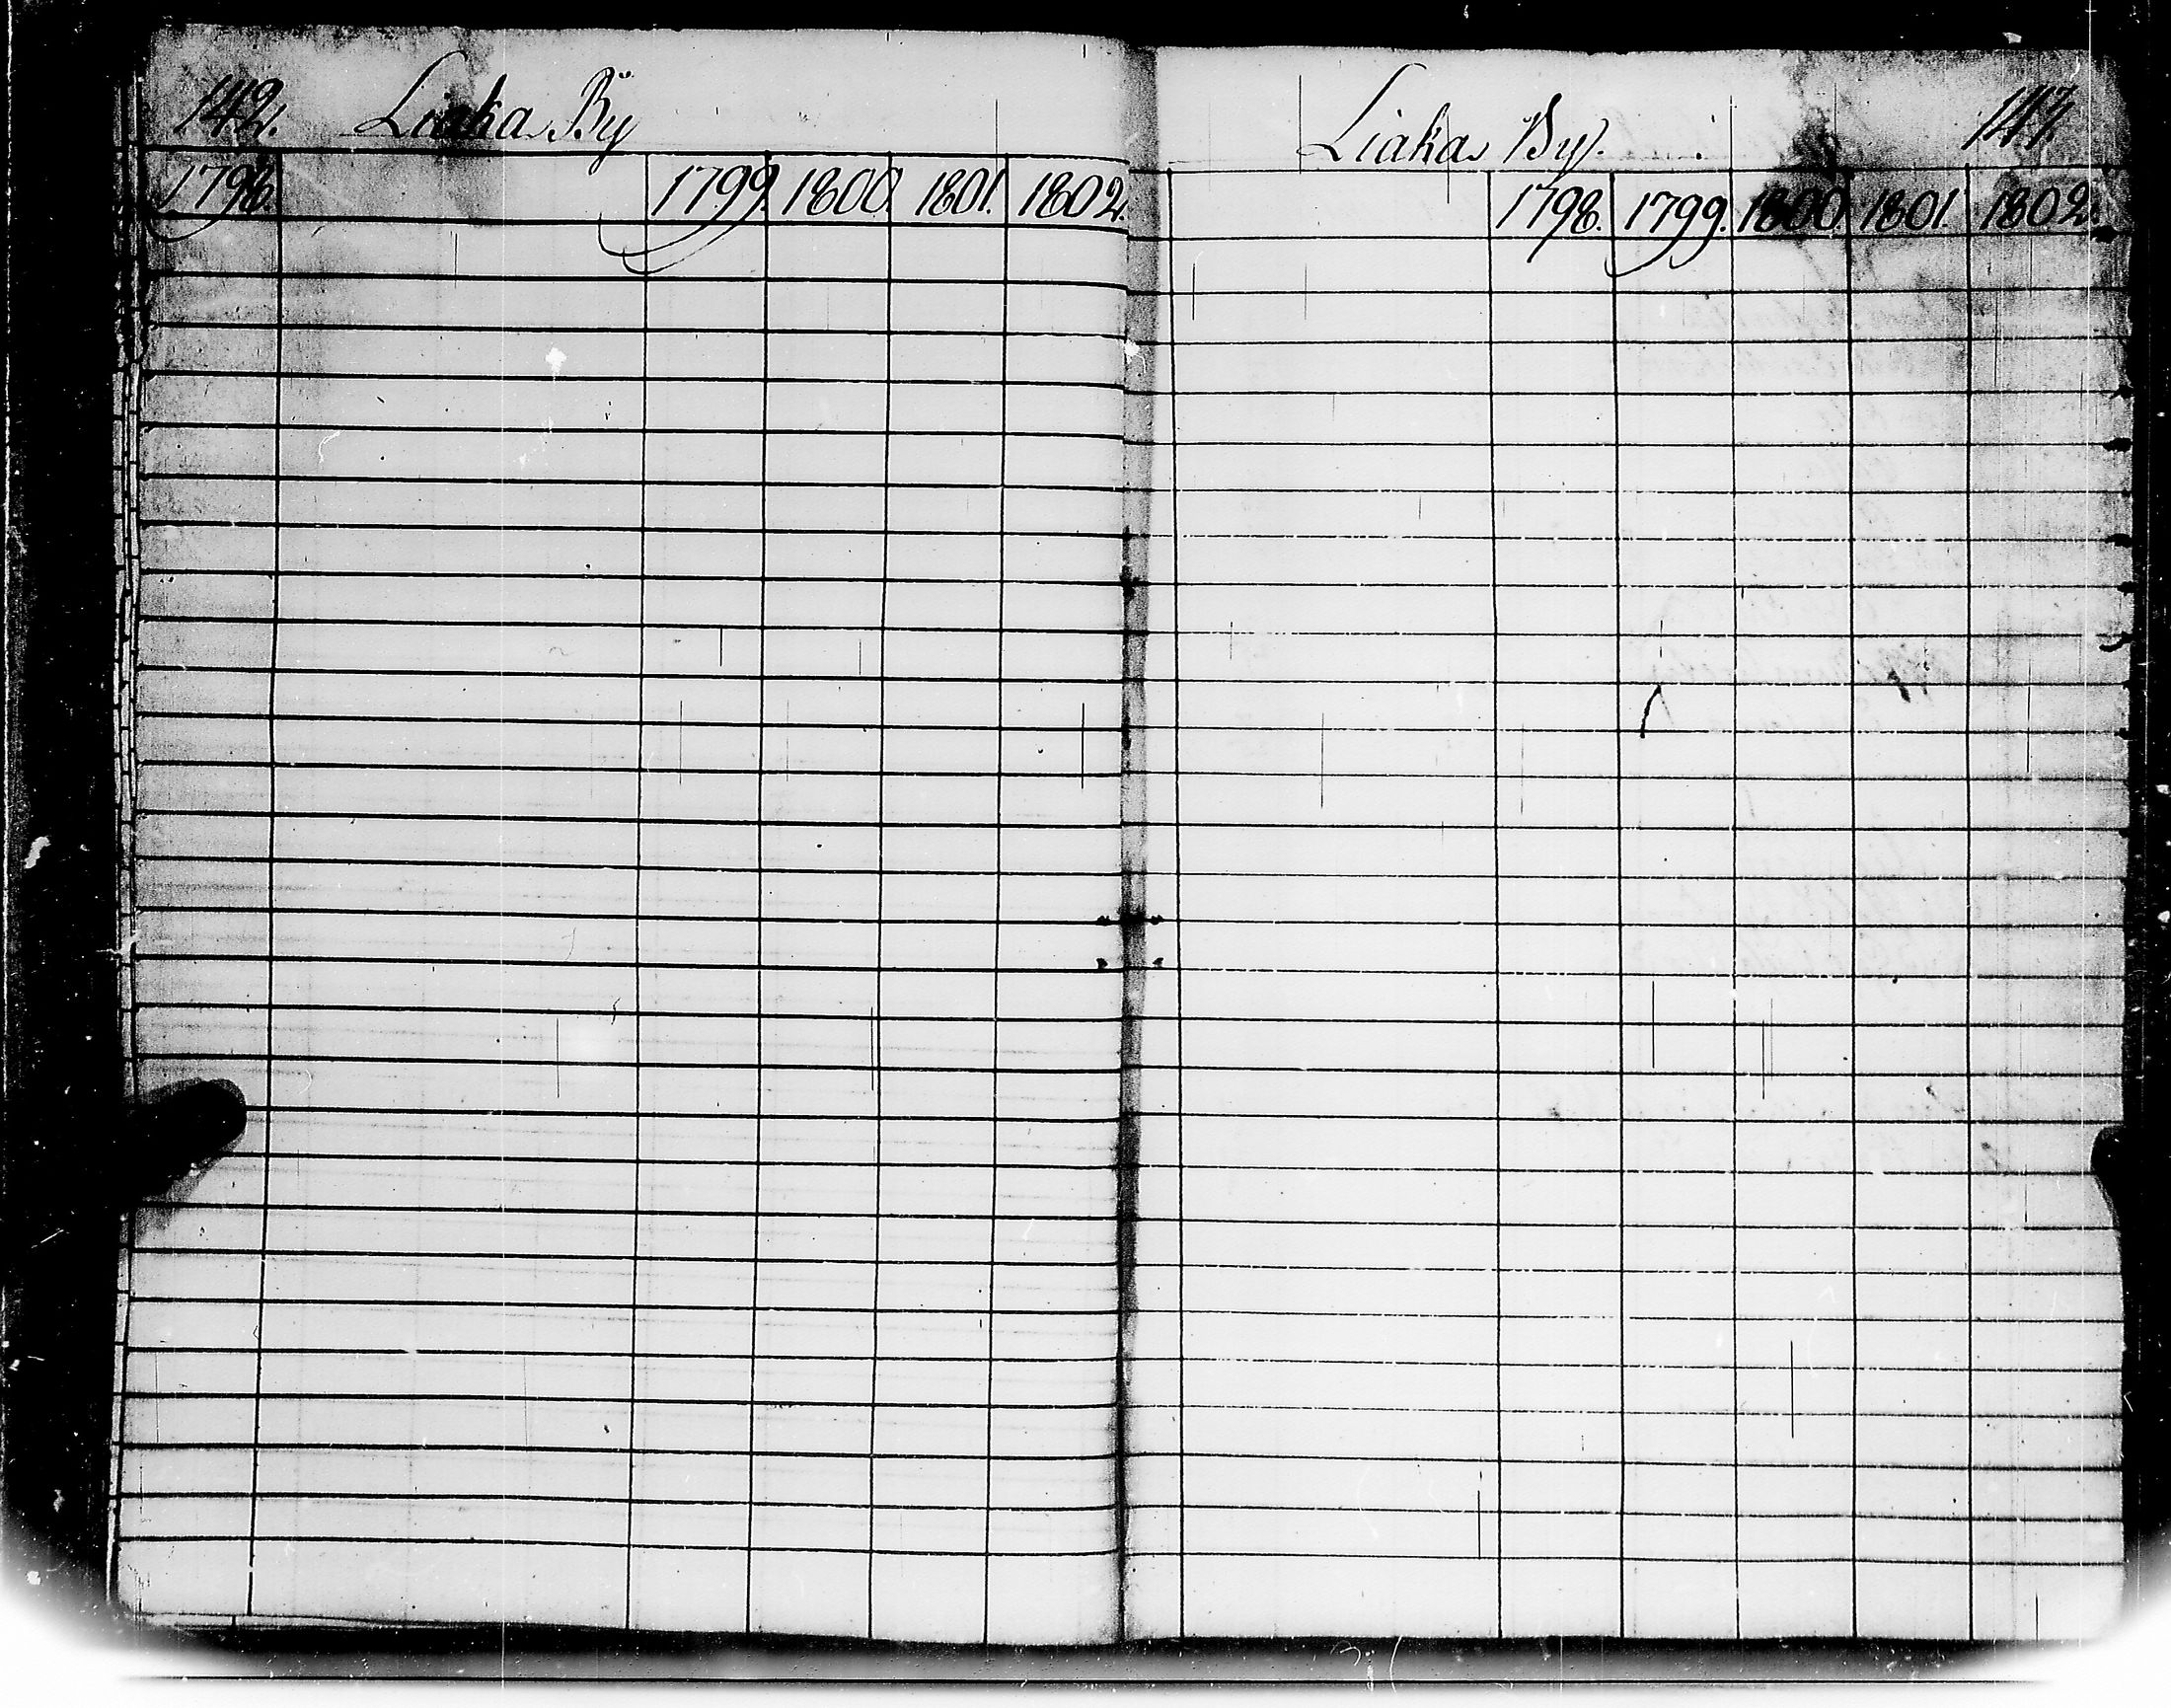 142. Liaka Bÿ
1798. 1799. 1800. 1801. 1802.
Liaka By. 143.
1798. 1799. 1800. 1801 1802.